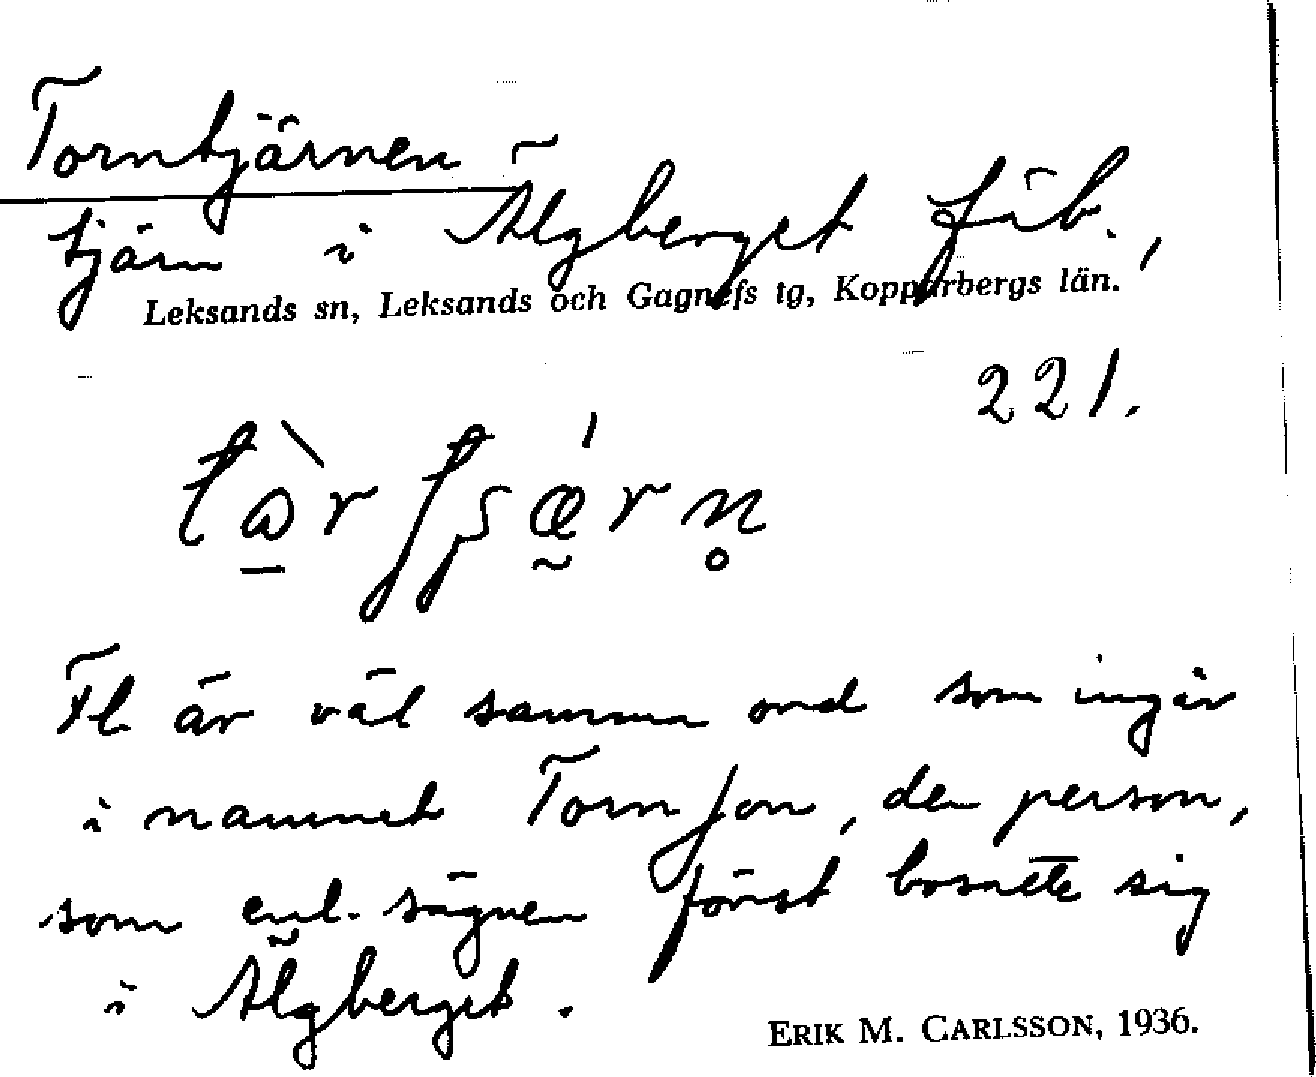 Torntjärnen
tjärn i Älgberget fäb.,
Leksands sn, Leksands och Gagnefs tg, Kopparbergs län.
221.
Fl. är väl samma ord som ingår
i namnet Torn Jon, den person,
som enl. sägnen först bosatte sig
i Älgberget.
ERIK M. CARLSSON, 1936.